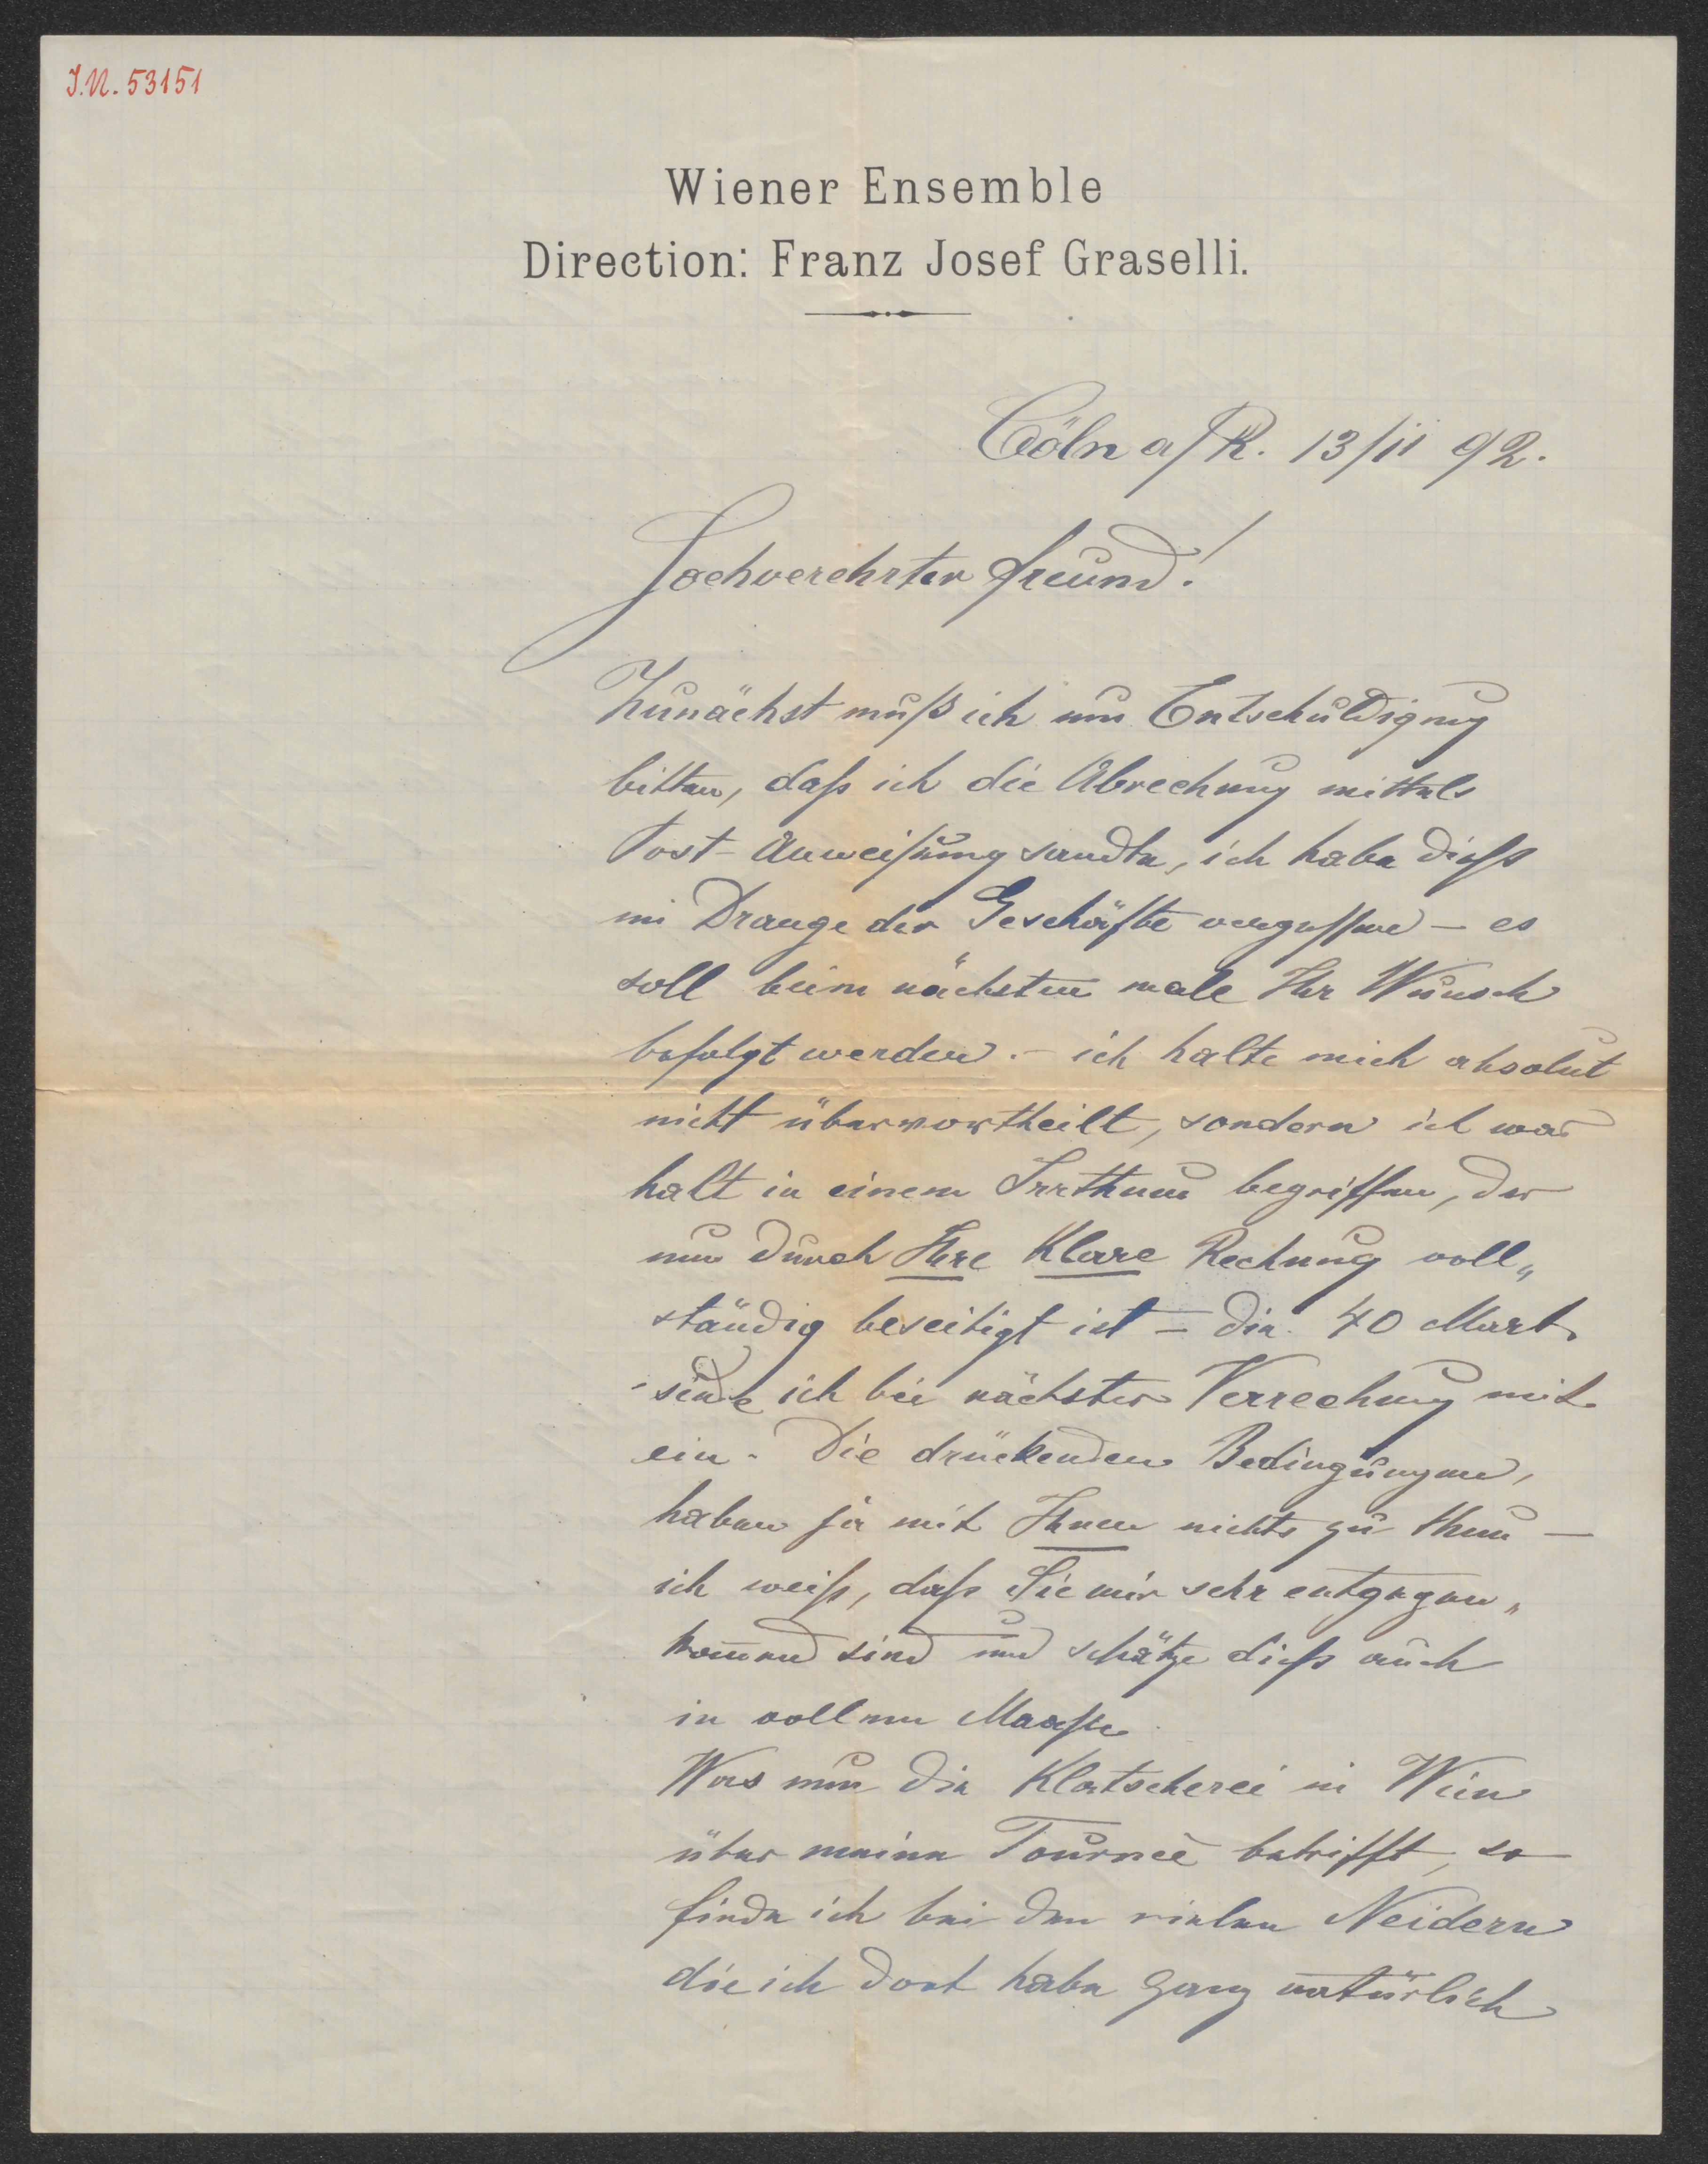 J.N. 53151
Wiener Ensemble
Direction: Franz Josef Graselli.
Cöln a/R. 13/11 92.
Hochverehrter Freund!
Zunächst muß ich um Entschuldigung
bitten, daß ich die Abrechnung mittels
Post-Anweisung sandte, ich habe dieß
im Drange der Geschäfte vergessen – es
soll beim nächsten male Ihr Wunsch
befolgt werden. – ich halte mich absolut
nicht übervortheilt, sondern ich war
halt in einem Irrthum begriffen, der
nun durch Ihre Klare Rechnung voll„
ständig beseitigt ist – die 40 Mark
sende ich bei nächster Verrechnung mit
ein. Die drückenden Bedingungen,
haben ja mit Ihnen nichts zu thun –
ich weiß, daß Sie mir sehr entgegen„
kom̄end sind und schätze dieß auch
in vollem Maaße.
Was nun die Klatscherei in Wien
über meine Tourneé betrifft, so
finde ich bei den vielen Neidern
die ich dort habe ganz natürlich